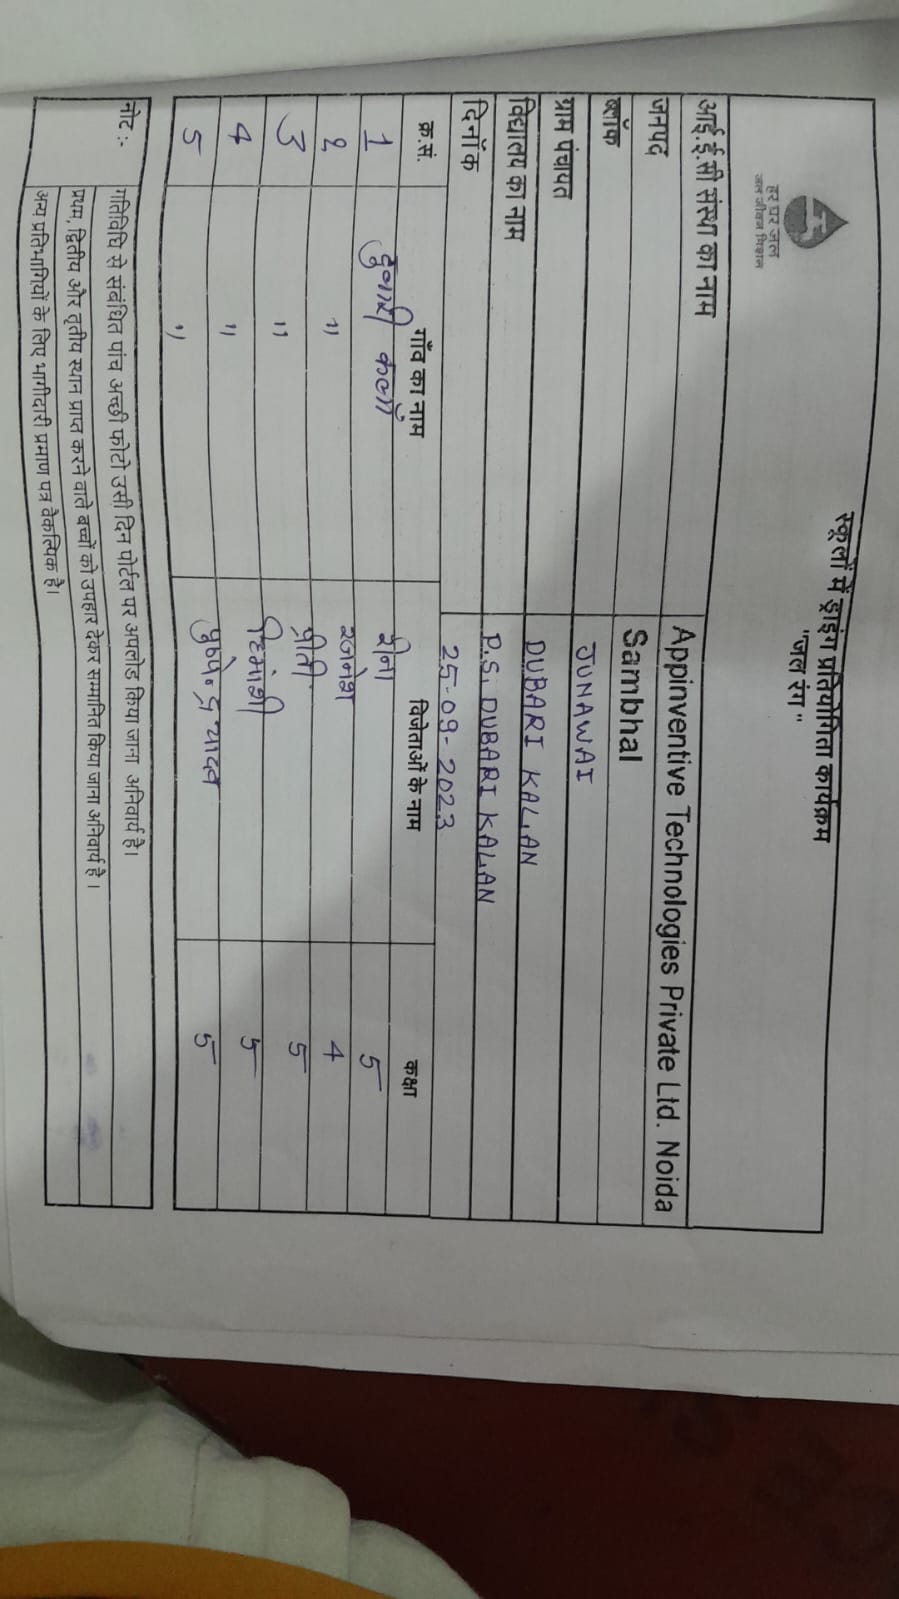 हर घर जल
जल जीवन मिशन
स्कूलों में ड्राइंग प्रतियोगिता कार्यक्रम
"जल रंग"
आई.ई.सी संस्था का नाम Appinventive Technologies Private Ltd. Noida
जनपद Sambhal
ब्लॉक JUNAWAI
ग्राम पंचायत DUBARI KALAN
विद्यालय का नाम P.S. DUBARI KALAN
दिनाँक 25-09-2023
क्र.सं. गाँव का नाम विजेताओं के नाम कक्षा
1 कलाँ रीना 5
2 " रजनेश 4
3 " प्रीती 5
4 " 5
5 " यादव 5
नोट :- गतिविधि से संबंधित पांच अच्छी फोटो उसी दिन पोर्टल पर अपलोड किया जाना अनिवार्य है।
प्रथम, द्वितीय और तृतीय स्थान प्राप्त करने वाले बच्चों को उपहार देकर सम्मानित किया जाना अनिवार्य है।
अन्य प्रतिभागियों के लिए भागीदारी प्रमाण पत्र वैकल्पिक है।